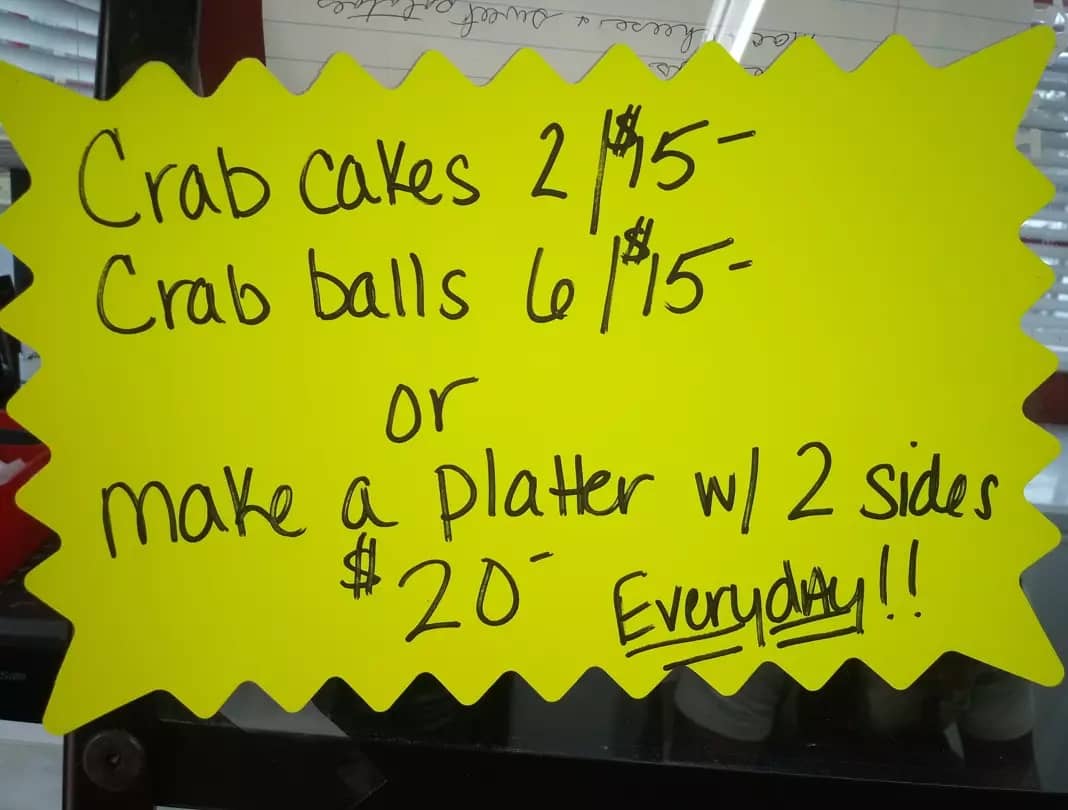 mac & cheese & sweet potatoes
Crab cakes 2/$15-
Crab balls 6/$15-
or
make a platter w/ 2 sides
$20-
Everyday!!